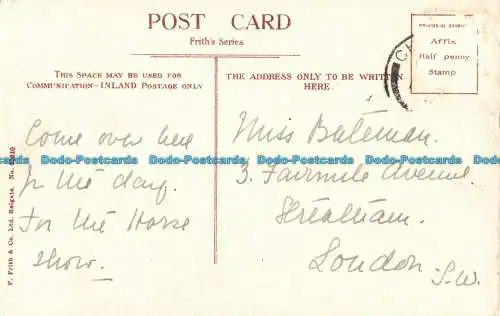 POST CARD
Frith's Series
PRINTED IN SAXONY
Affix
Half penny
Stamp
THIS SPACE MAY BE USED FOR
COMMUNICATION—INLAND POSTAGE ONLY
THE ADDRESS ONLY TO BE WRITTEN
HERE.
CH
Come over here
for the day.
For the Horse
show.
Miss Bateman.
3. Fairmile Avenue
Streatham.
London
S.W.
F. Frith & Co. Ltd., Reigate. No.
Dodo-Postcards Dodo-Postcards Dodo-Postcards Dodo-Postcards
Dodo-Postcards Dodo-Postcards Dodo-Postcards Dodo-Postcards
Dodo-Postcards Dodo-Postcards Dodo-Postcards Dodo-Postcards